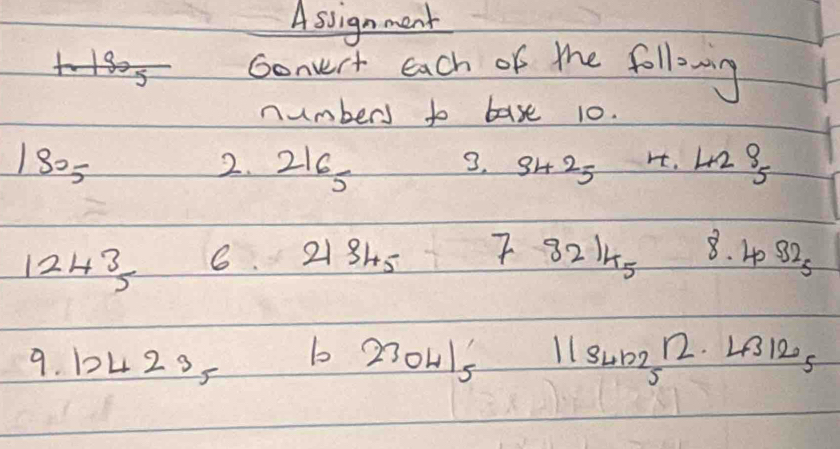 Assignment
1. 130₅ Convert each of the following
numbers to base 10.
130₅ 2. 216₅ 3. 342₅ 4. 423₅
1243₅ 6. 2134₅ 7 3214₅ 8. 4032₅
9. 12423₅ 10 23041₅ 11 34102₅ 12. 43120₅